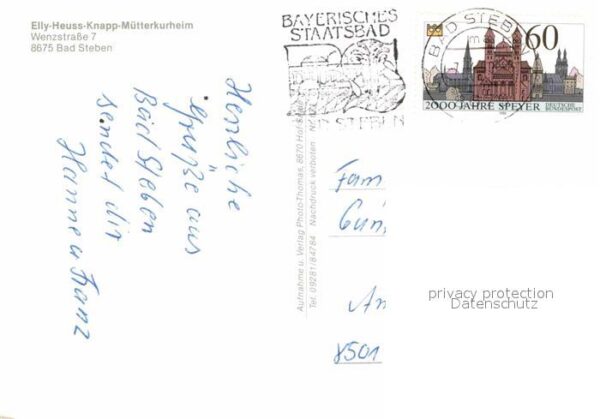 Elly-Heuss-Knapp-Mütterkurheim
Wenzstraße 7
8675 Bad Steben
BAYERISCHES
STAATSBAD
BAD STEBEN
60
2000 JAHRE SPEYER
DEUTSCHE
BUNDESPOST
Herzliche
Grüße aus
Bad Steben
sendet dir
Hanne u Franz
Aufnahme u. Verlag PhotoThomas, 8670 Hof
Tel. 09281/84784 Nachdruck verboten
Fam
Gün
An
8501
privacy protection
Datenschutz